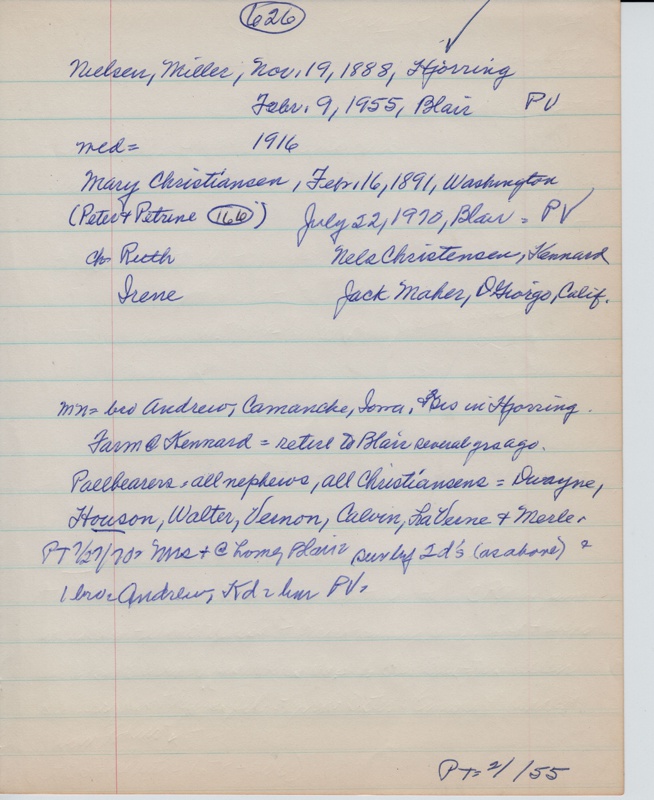 626
Nielsen, Miller, Nov. 19, 1888, Hjorring
Febr. 9, 1955, Blair PV
med= 1916
Mary Christiansen, Febr. 16, 1891, Washington
(Peter & Petrine 166) July 22, 1970, Blair = PV
ch Ruth Nels Christensen, Kennard
Irene Jack Maher, DiGiorgo, Calif.
mn= bro Andrew, Camanche, Iowa, in Hjorring.
Farm @ Kennard = retire to Blair several yrs ago.
Pallbearers = all nephews, all Christiansens = Dwayne,
Houson, Walter, Vernon, Calvin, LaVerne & Merle.
PT 7/27/70= Mrs + @ home, Blair surv by 2 d's (as above) &
1 bro = Andrew, Kd = bur PV.
PT= 2/ /55